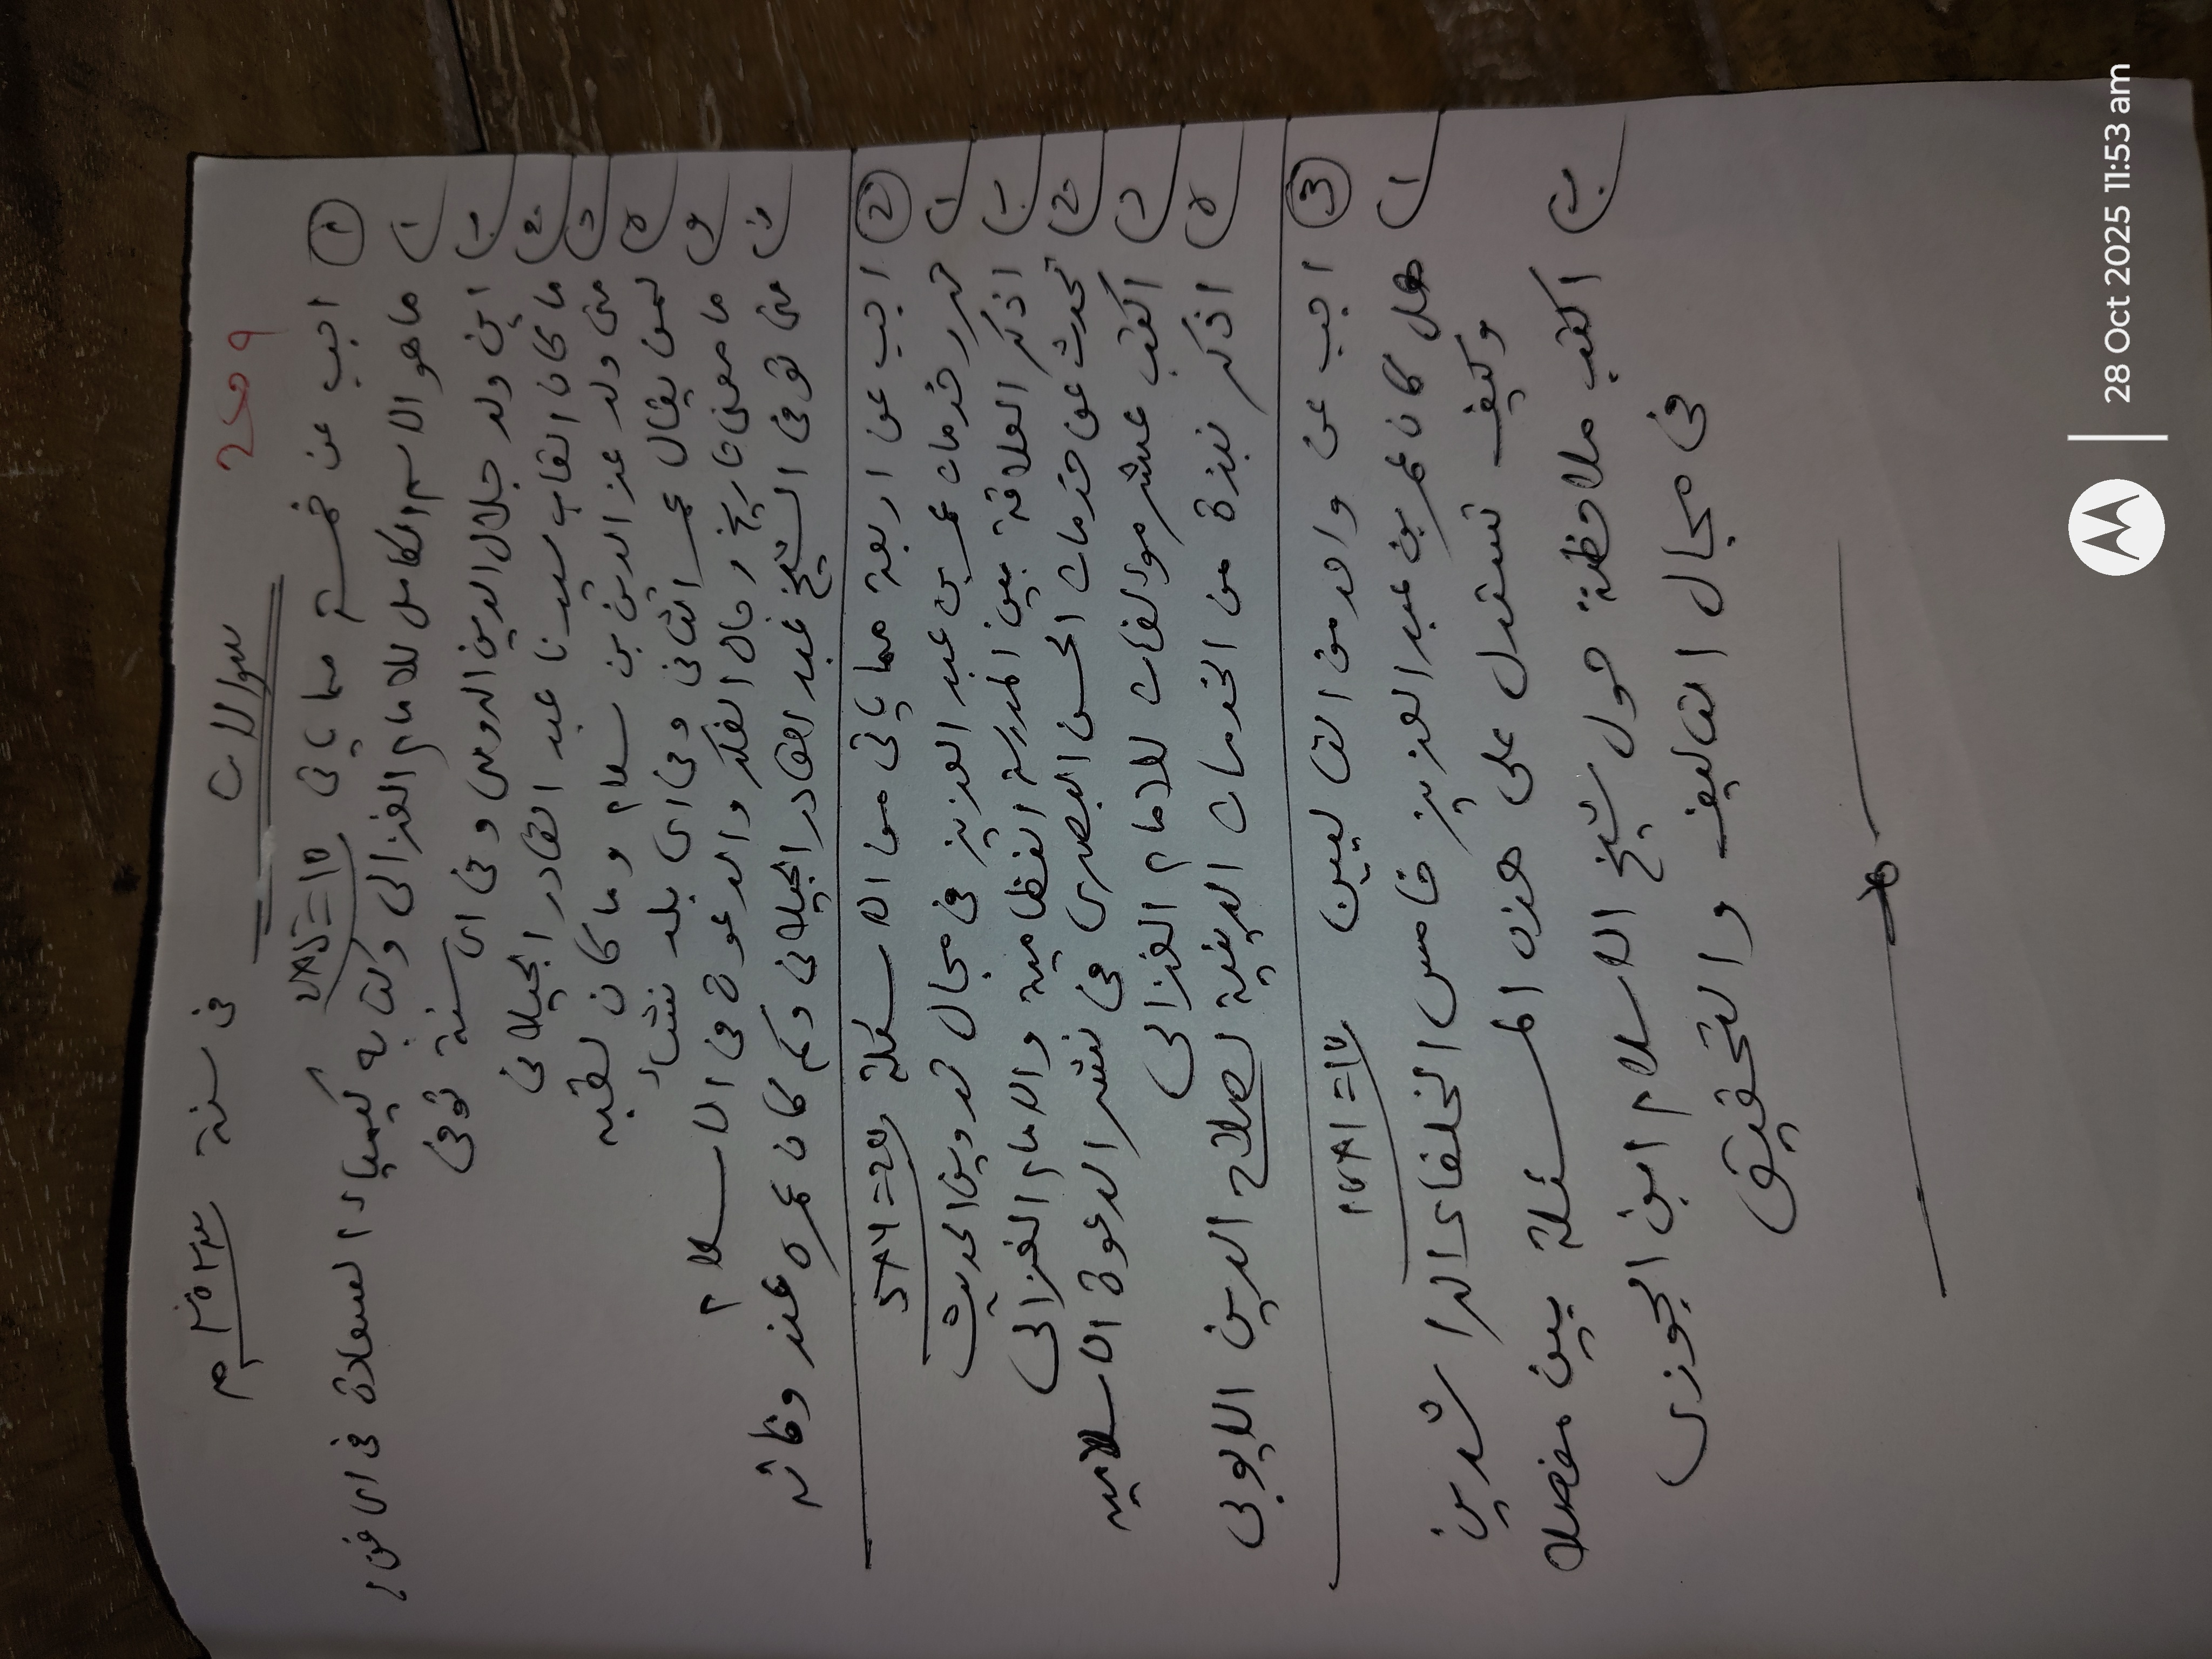 سوالات فى سنة
① اجب عن خمسة مما ياتى
ا) ما هو الاسم الكامل للامام الغزالى وكتابه كيمياء السعادة فى اى فن؟
ب) اين ولد جلال الدين الرومى و فى اى سنة توفى
ج) ما كان القاب سيدنا عبد القادر الجيلانى
د) متى ولد عز الدين بن سلام و ما كان لقبه
ه) لمن يقال عمر الثانى وفى اى بلد نشاء
و) ما معنى تاريخ رجال الفكر والدعوة فى الاسلام
ز) متى توفى الشيخ عبد القادر الجيلانى وكم كان عمره عند وفاته
② اجب عن اربعة مما ياتى من الاسئلة
ا) حرر خدمات عمر بن عبد العزيز فى مجال تدوين الحديث
ب) اذكر العلاقة بين المدرسة النظامية والامام الغزالى
ج) تحدث عن خدمات الحسن البصرى فى نشر الدعوة الاسلاميه
د) اكتب عشر مؤلفات للامام الغزالى
ه) اذكر نبذة من الخدمات الدينية لصلاح الدين الايوبى
③ اجب عن واحد من التاليين
ا) هل كان عمر بن عبد العزيز خامس الخلفاء الراشدين
وكيف تستدل على هذه المسئلة بين مفصلا
ب) اكتب ملاحظة حول شيخ الاسلام ابن الجوزى
فى مجال التاليف والتحقيق
28 Oct 2025 11:53 am